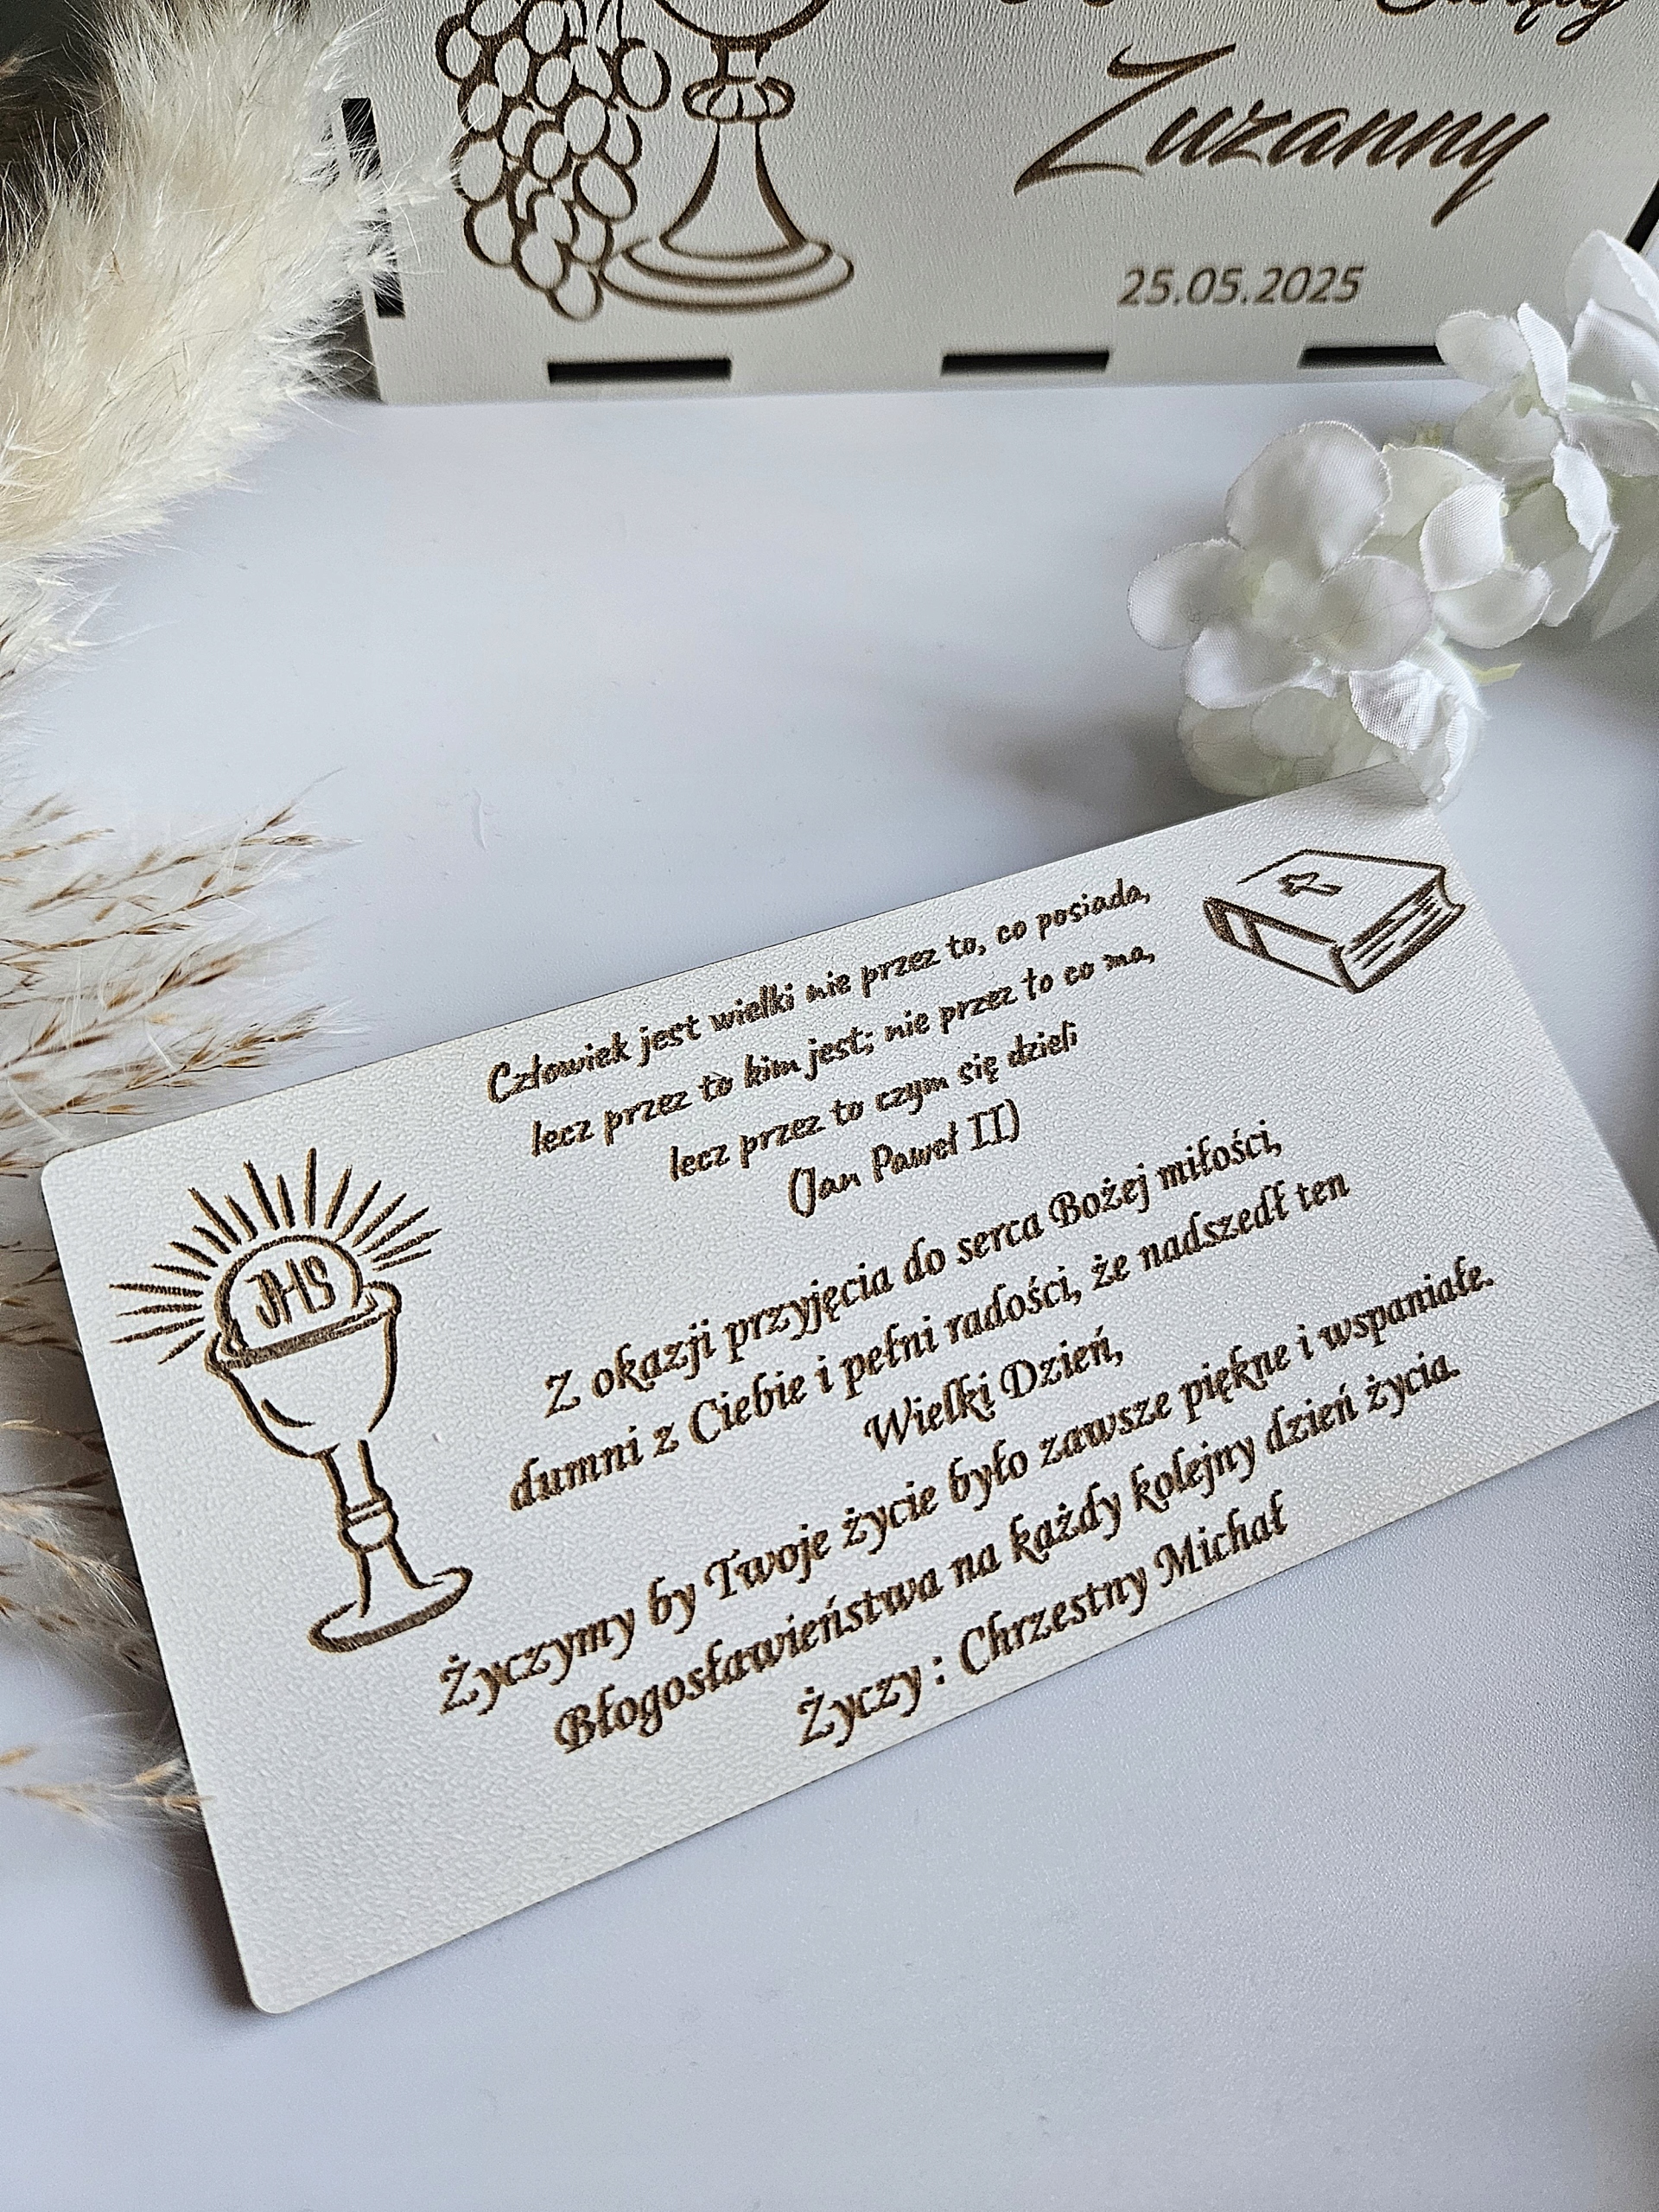 Zuzanny
25.05.2025
Człowiek jest wielki nie przez to, co posiada,
lecz przez to kim jest; nie przez to co ma,
lecz przez to czym się dzieli
(Jan Paweł II)
Z okazji przyjęcia do serca Bożej miłości,
dumni z Ciebie i pełni radości, że nadszedł ten
Wielki Dzień,
Życzymy by Twoje życie było zawsze piękne i wspaniałe.
Błogosławieństwa na każdy kolejny dzień życia.
Życzy : Chrzestny Michał
JHS